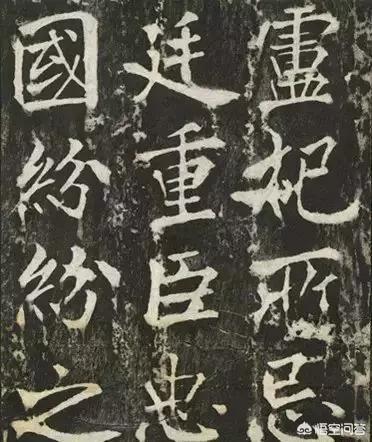 盧杞所忌
廷重臣忠
國紛紛之
悟空问答